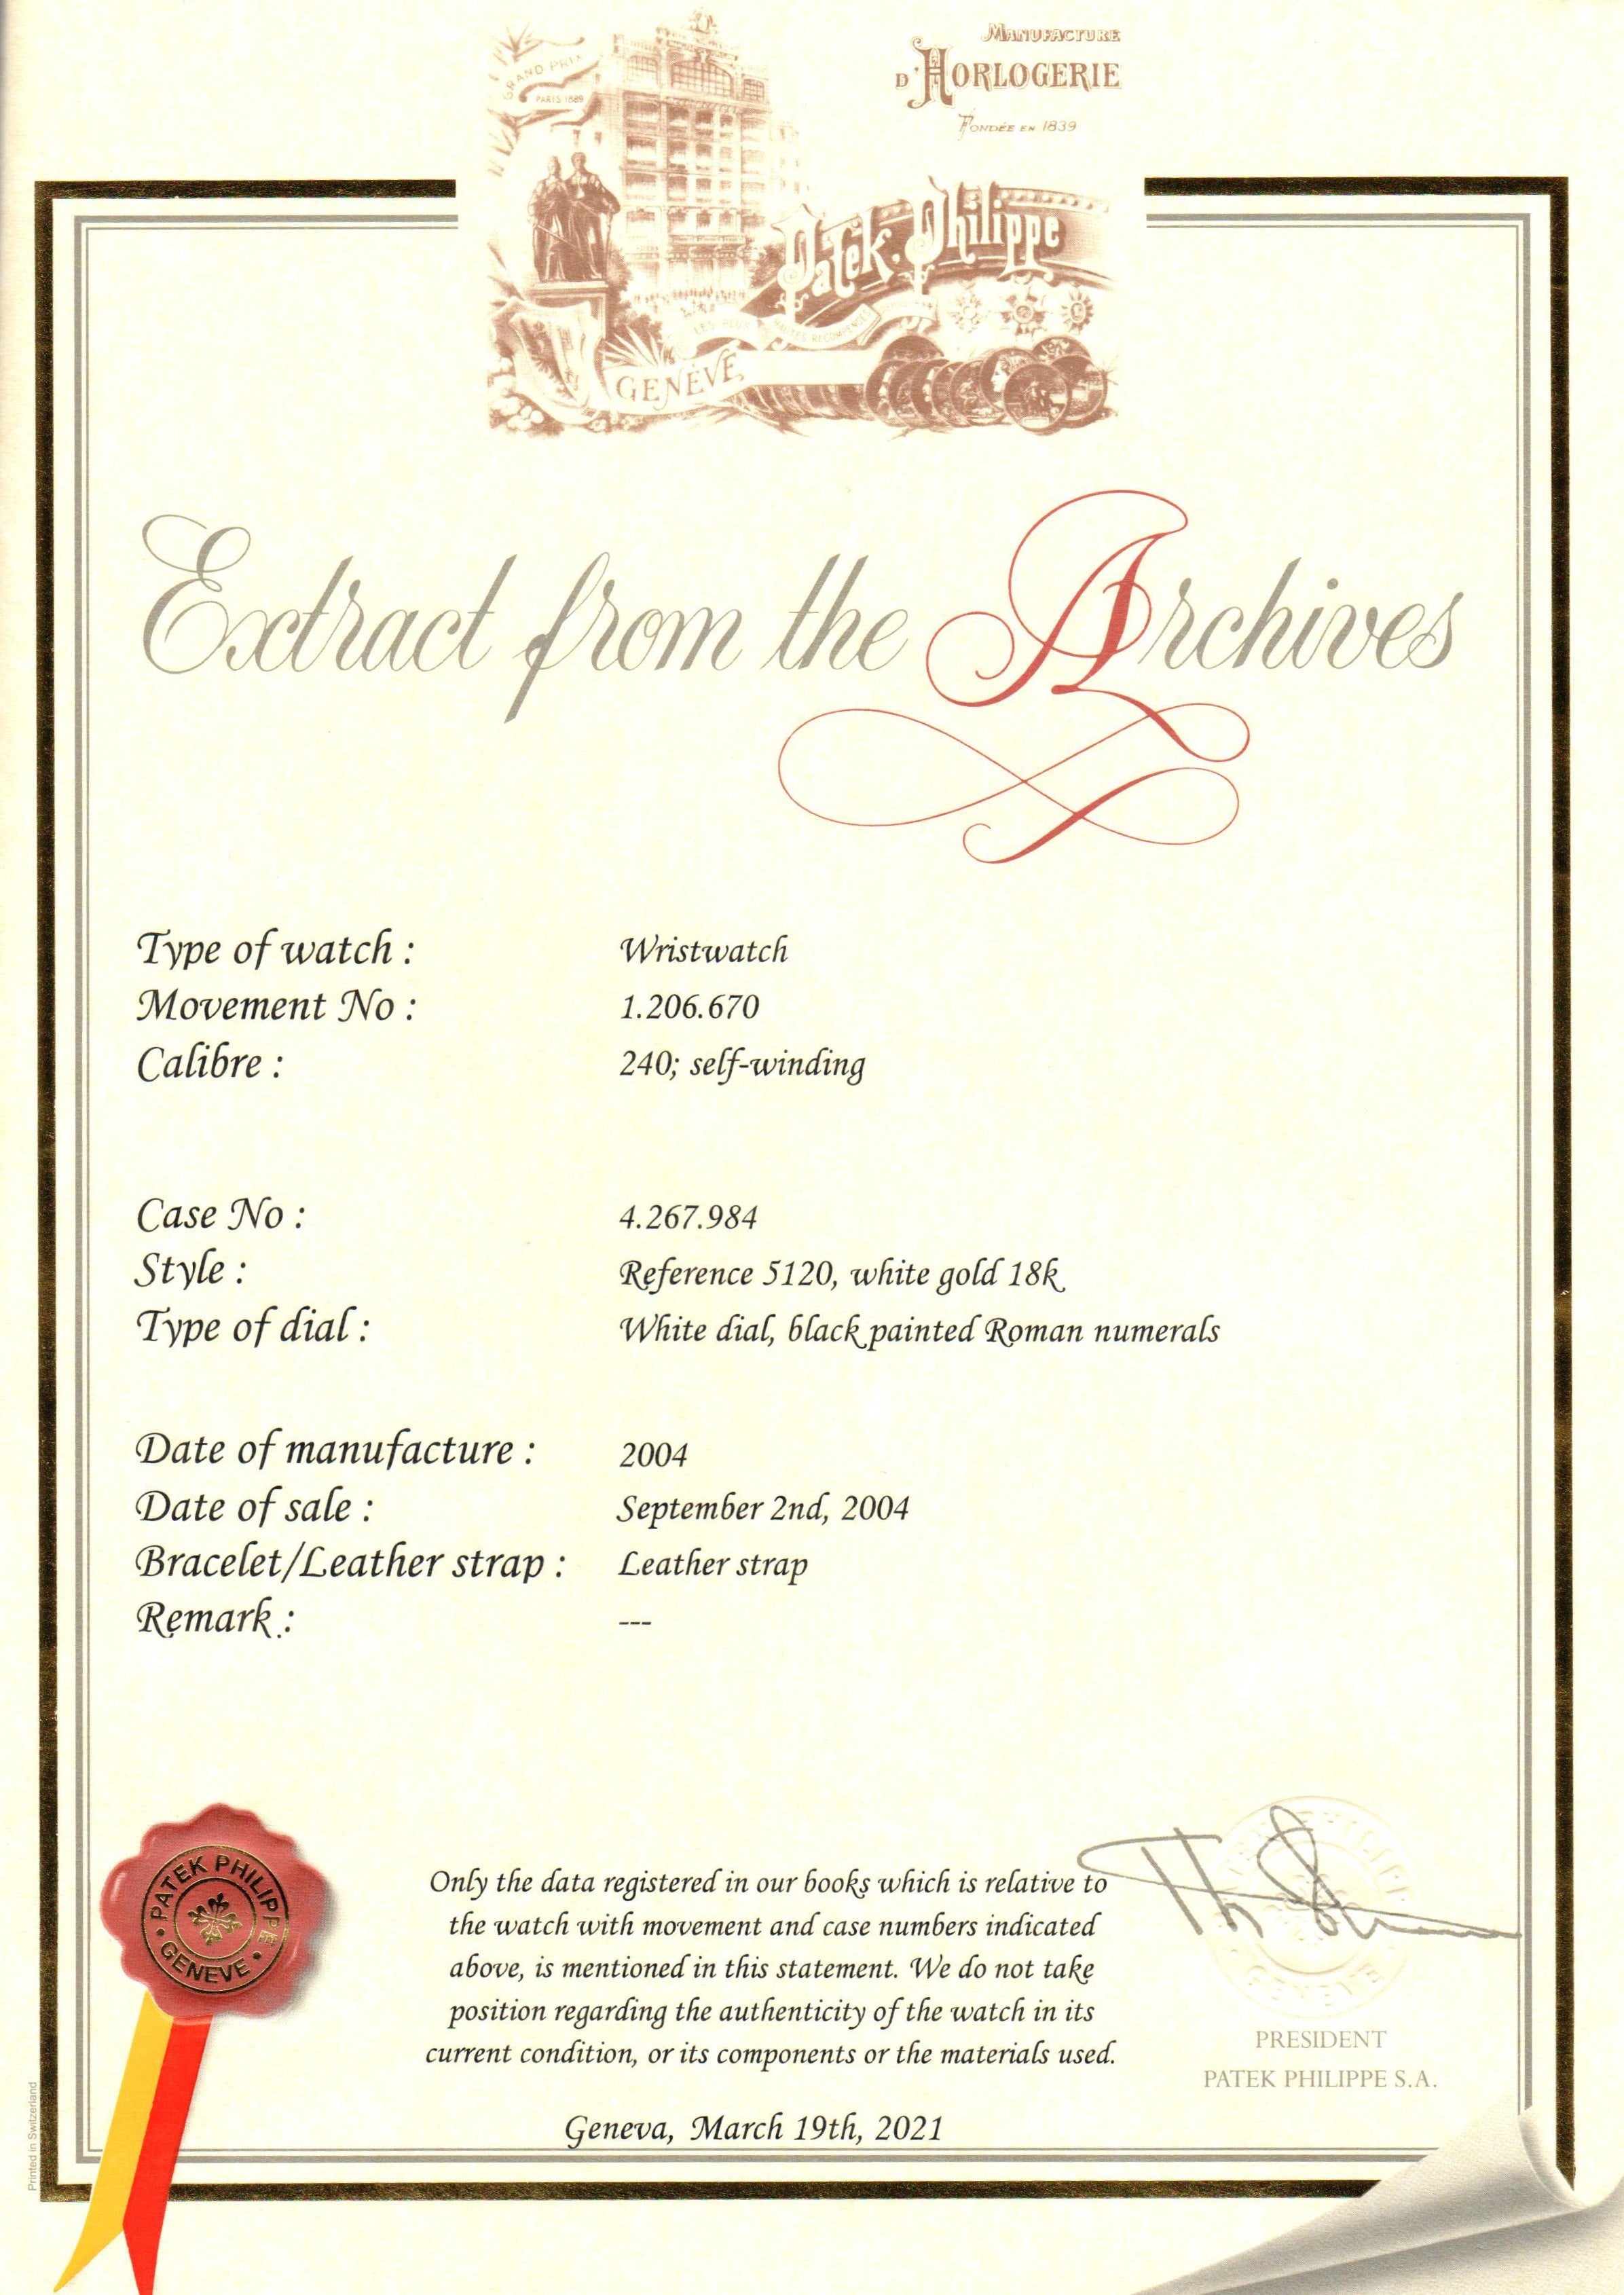 MANUFACTURE
D'HORLOGERIE
FONDÉE EN 1839
GRAND PRIX
PARIS 1889
Patek Philippe
LES PLUS HAUTES RECOMPENSES
GENÈVE
Extract from the Archives
Type of watch : Wristwatch
Movement No : 1.206.670
Calibre : 240; self-winding
Case No : 4.267.984
Style : Reference 5120, white gold 18k
Type of dial : White dial, black painted Roman numerals
Date of manufacture : 2004
Date of sale : September 2nd, 2004
Bracelet/Leather strap : Leather strap
Remark : ---
PATEK PHILIPPE
GENEVE
Only the data registered in our books which is relative to
the watch with movement and case numbers indicated
above, is mentioned in this statement. We do not take
position regarding the authenticity of the watch in its
current condition, or its components or the materials used.
PRESIDENT
PATEK PHILIPPE S.A.
Geneva, March 19th, 2021
Printed in Switzerland